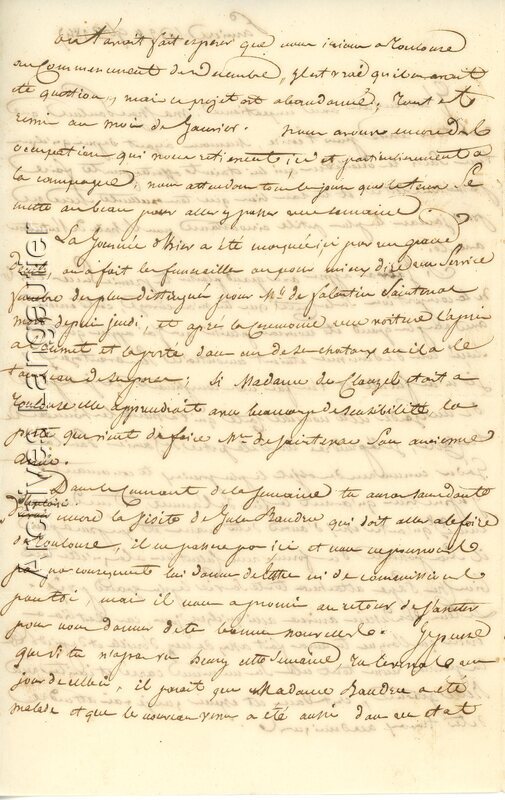 on t'avait fait esperer que nous irions a Toulouse
au Commencement de Decembre, il est vrai qu'il en avait
eté question, mais ce projet est abandonné, tout est
remis au mois de Janvier. nous avons encore des
occupations qui nous retiennent ici et particulierement a
la campagne, nous attendons tous les jours que le tems se
mette au beau pour aller y passer une semaine
La Journée d'hier a été marquée ici par un grand
on a fait les funerailles ou pour mieux dire un Service
funebre des plus distingué pour Mr de Saintenac
mort depuis jeudi, et après la Ceremonie une voiture l'a pris
a et la porté dans un de ses chateaux ou il a le
de reposer; Si Madame de Clauzel etait a
Toulouse elle apprendrait avec beaucoup de sensibilité la
perte que vient de faire Mme de Saintenac Son ancienne
amie.
Dans le Courant de la Semaine tu auras sans doute
encore la visite de Jules Baudru qui doit aller a la foire
de Toulouse, il ne passera pas ici et nous ne pourrons
par consequent lui donner de lettre ni de commissions
pour toi, mais il nous a promis au retour de s'arreter
pour nous donner de tes bonnes nouvelles. Je pense
que si tu n'as pas vu Henry cette semaine, tu le verras un
jour de celle ci, il parait que Madame Baudru a été
malade et que le nouveau venu a été aussi dans un etat
Archives Langautier